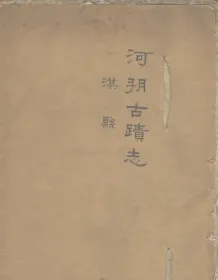 河朔古蹟志
淇縣